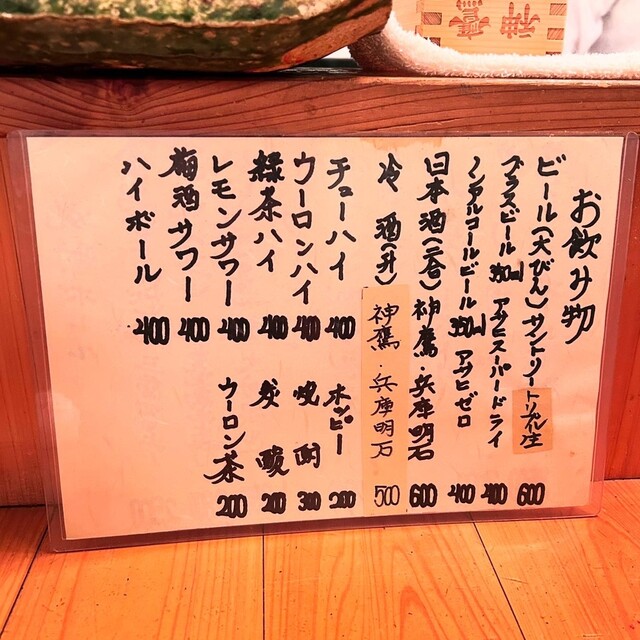 お飲み物
ビール(大びん)サントリートリプル生 600
グラスビール 350ml アサヒスーパードライ 400
ノンアルコールビール 350ml アサヒゼロ 400
日本酒(二合)神鷹・兵庫明石 600
冷酒(升)神鷹・兵庫明石 500
チューハイ 400
ウーロンハイ 400
緑茶ハイ 400
レモンサワー 400
梅酒サワー 400
ハイボール 400
ホッピー 200
焼酎 300
炭酸 200
ウーロン茶 200
神鷹